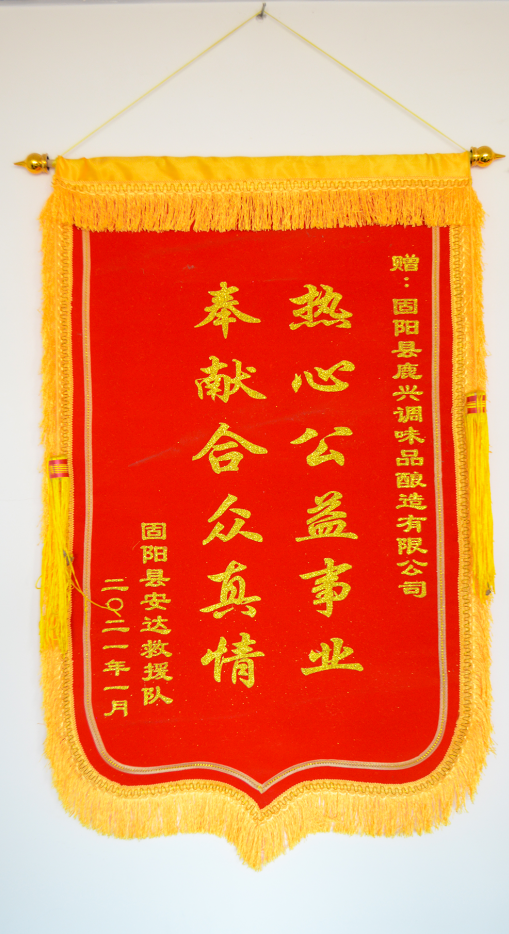 赠：固阳县鹿兴调味品酿造有限公司
热心公益事业
奉献合众真情
固阳县安达救援队
二〇二一年一月